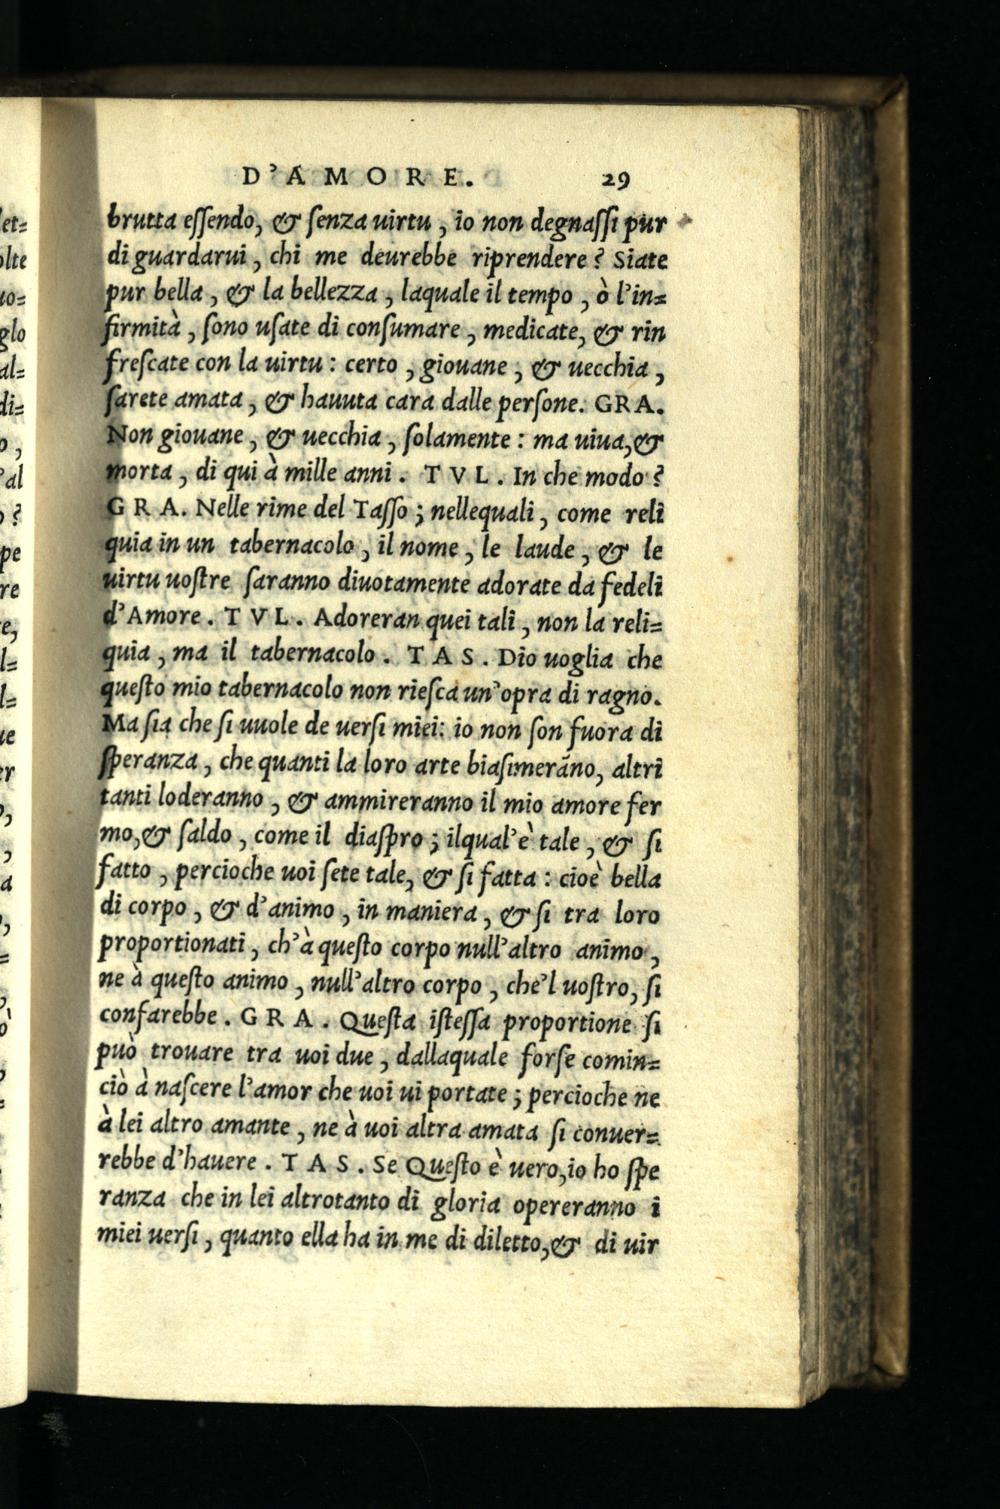 D'AMORE. 29
brutta essendo, & senza uirtu, io non degnassi pur
di guardarui, chi me deurebbe riprendere? Siate
pur bella, & la bellezza, laquale il tempo, ò l'in=
firmità, sono usate di consumare, medicate, & rin
frescate con la uirtu: certo, giouane, & uecchia,
sarete amata, & hauuta cara dalle persone. GRA.
Non giouane, & uecchia, solamente: ma uiua, &
morta, di qui à mille anni. TVL. In che modo?
GRA. Nelle rime del Tasso; nellequali, come reli
quia in un tabernacolo, il nome, le laude, & le
uirtu uostre saranno diuotamente adorate da fedeli
d'Amore. TVL. Adoreran quei tali, non la reli=
quia, ma il tabernacolo. TAS. Dio uoglia che
questo mio tabernacolo non riesca un'opra di ragno.
Ma sia che si uuole de uersi miei: io non son fuora di
speranza, che quanti la loro arte biasimeranno, altri
tanti loderanno, & ammireranno il mio amore fer
mo, & saldo, come il diaspro; ilqual'è tale, & si
fatto, percioche uoi sete tale, & si fatta: cioè bella
di corpo, & d'animo, in maniera, & si tra loro
proportionati, ch'à questo corpo null'altro animo,
ne à questo animo, null'altro corpo, che'l uostro, si
confarebbe. GRA. Questa istessa proportione si
può trouare tra uoi due, dallaquale forse comin=
ciò à nascere l'amor che uoi ui portate; percioche ne
à lei altro amante, ne à uoi altra amata si conuer=
rebbe d'hauere. TAS. Se Questo è uero, io ho spe
ranza che in lei altrotanto di gloria opereranno i
miei uersi, quanto ella ha in me di diletto, & di uir